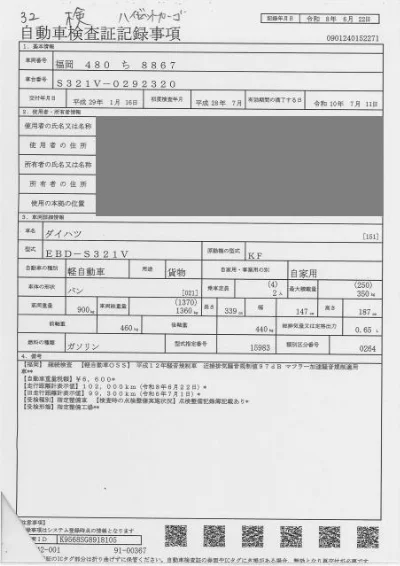 32 検 ハイゼットカーゴ
記録年月日 令和 8年 6月 22日
自動車検査証記録事項
0901240152271
1. 基本情報
車両番号 福岡 480 ち 8867
車台番号 S321V-0292320
交付年月日 平成 29年 1月 16日 初度検査年月 平成 28年 7月 有効期間の満了する日 令和 10年 7月 11日
2. 使用者・所有者情報
使用者の氏名又は名称
使用者の住所
所有者の氏名又は名称
所有者の住所
使用の本拠の位置
3. 車両詳細情報
車名 ダイハツ [151]
型式 EBD-S321V 原動機の型式 KF
自動車の種別 軽自動車 用途 貨物 自家用・事業用の別 自家用
車体の形状 バン [021] 乗車定員 (4) 2人 最大積載量 (250) 350kg
車両重量 900kg 車両総重量 (1370) 1360kg 長さ 339cm 幅 147cm 高さ 187cm
前軸重 460kg 後軸重 440kg 総排気量又は定格出力 0.65L
燃料の種類 ガソリン 型式指定番号 15983 類別区分番号 0264
4. 備考
【福岡】 継続検査 【軽自動車OSS】 平成12年騒音規制車 近接排気騒音規制値97dB マフラー加速騒音規制適用
車**
【自動車重量税額】¥6,600*
【走行距離計表示値】102,000km(令和8年6月22日)*
【旧走行距離計表示値】99,300km(令和6年7月1日)*
【受検種別】指定整備車 【検査時の点検整備実施状況】点検整備記録簿記載あり*
【受検形態】指定整備工場**
[注意事項]
K9568SG8918105
91-00367